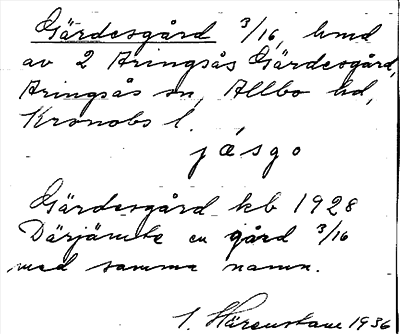 Gärdesgård 3/16, hmd
av 2 Aringsås Gärdesgård,
Aringsås sn, Allbo hd,
Kronobs l.
jäsgo
Gärdesgård kb 1928
Därjämte en gård 3/16
med samma namn.
1936